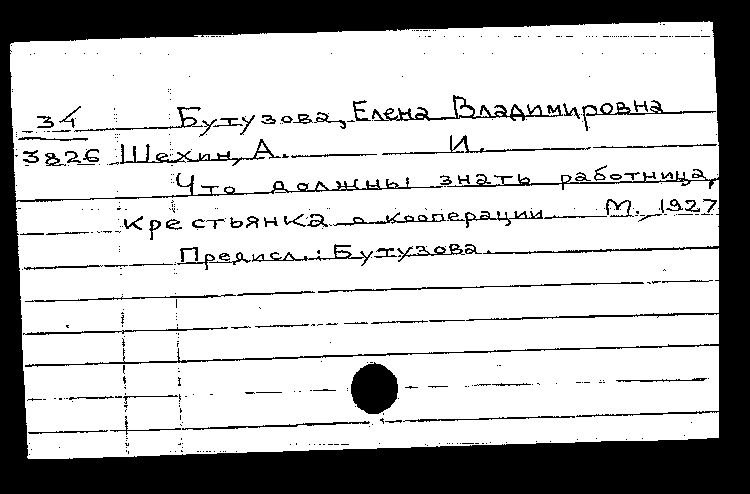 34 Бутузова, Елена Владимировна
3826 Шехин, А. И.
Что должны знать работница,
крестьянка о кооперации М., 1927
Предисл.: Бутузова.